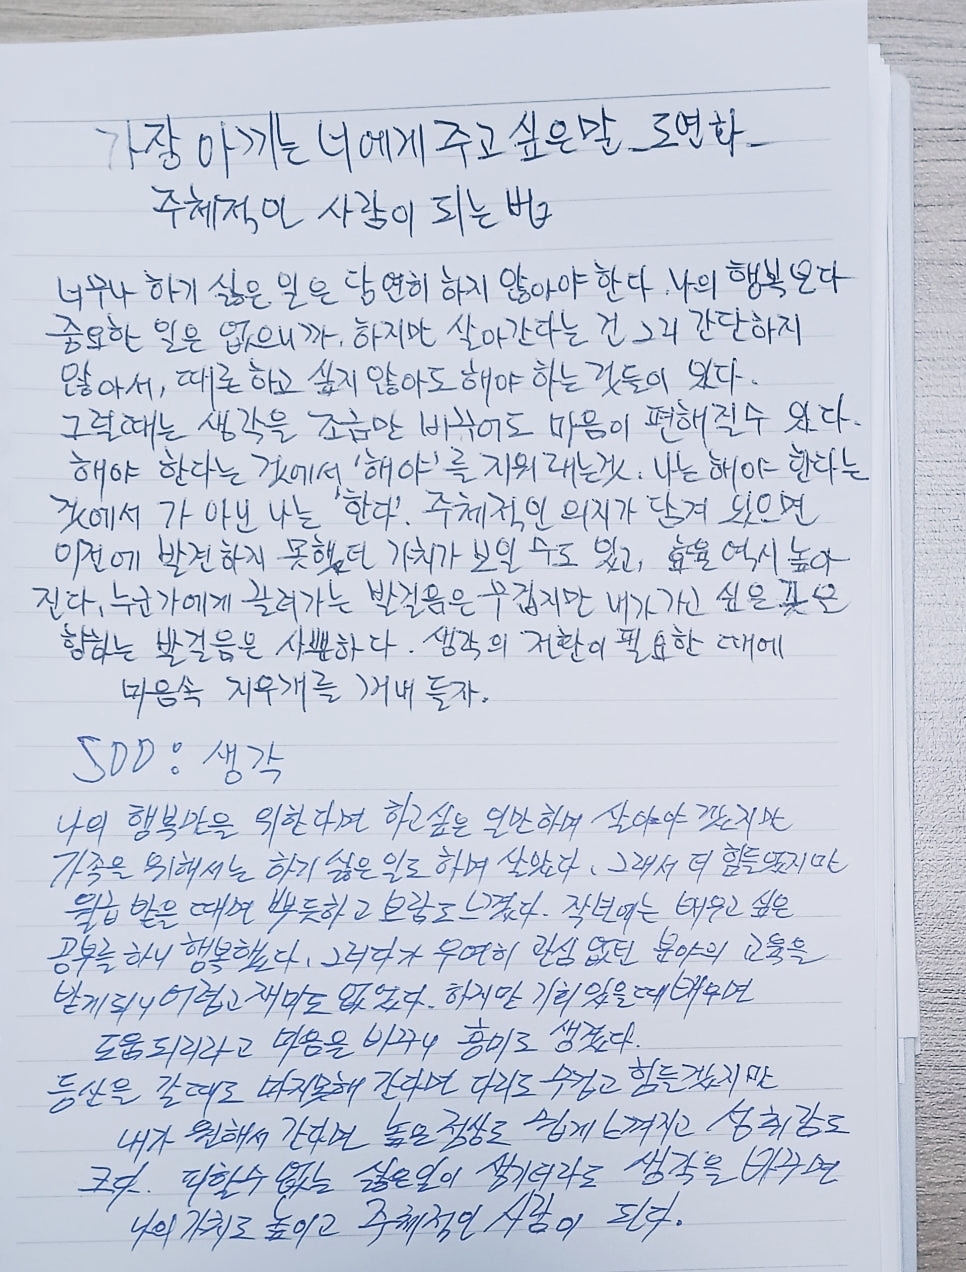 가장 아끼는 너에게 주고 싶은말 _도연화_
주체적인 사람이 되는 법
너무나 하기 싫은 일은 당연히 하지 않아야 한다. 나의 행복보다
중요한 일은 없으니까. 하지만 살아간다는 건 그리 간단하지
않아서, 때론 하고 싶지 않아도 해야 하는 것들이 있다.
그럴때는 생각을 조금만 바꾸어도 마음이 편해질수 있다.
해야 한다는 것에서 '해야'를 지워 내는것. 나는 해야 한다는
것에서 가 아닌 나는 '한다'. 주체적인 의지가 담겨 있으면
이전에 발견하지 못했던 가치가 보일 수도 있고, 효율 역시 높아
진다. 누군가에게 끌려가는 발걸음은 무겁지만 내가 가고 싶은 곳을
향하는 발걸음은 사뿐하다. 생각의 전환이 필요한 때에
마음속 지우개를 꺼내 들자.
SOO : 생각
나의 행복만을 위한다면 하고싶은 일만하며 살아야 겠지만
가족을 위해서는 하기 싫은 일도 하며 살았다. 그래서 더 힘들었지만
월급 받을 때면 뿌듯하고 보람도 느꼈다. 작년에는 배우고 싶은
공부를 하니 행복했다. 그러다가 우연히 관심 없던 분야의 교육을
받게되니 어렵고 재미도 없었다. 하지만 기회 있을때 배우면
도움되리라고 마음을 바꾸니 흥미도 생겼다.
등산을 갈때도 마지못해 간다면 다리도 무겁고 힘들겠지만
내가 원해서 간다면 높은 정상도 쉽게 느껴지고 성취감도
크다. 피할수 없는 싫은일이 생기더라도 생각을 바꾸면
나의 가치도 높이고 주체적인 사람이 된다.